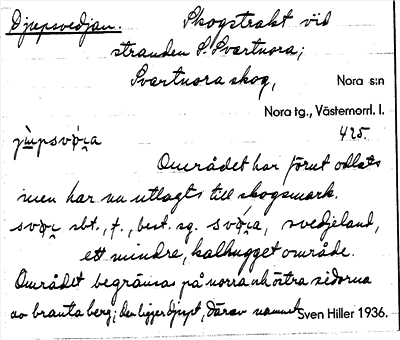 Djupsvedjan. Skogstrakt vid
stranden S. Svartnora;
Svartnora skog, Nora s:n
Nora tg., Västernorrl. l.
425.
Området har förut odlats
men har nu utlagts till skogsmark.
sbt., f., best. sg. svedjeland,
ett mindre, kalhugget område.
Området begränsas på norra och östra sidorna
av branta berg; den ligger djupt, därav namnet Sven Hiller 1936.